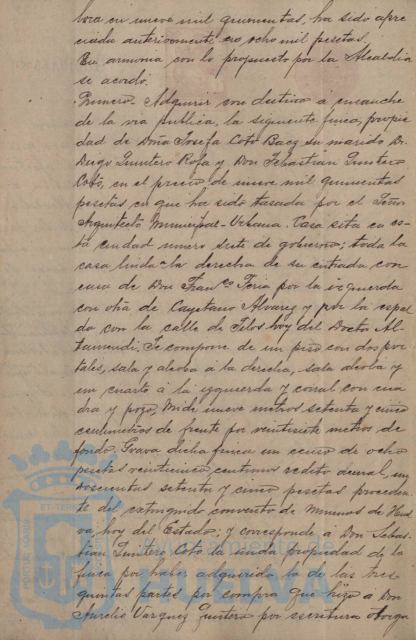 bora en nueve mil quinientas, ha sido apre
ciada anteriormente en ocho mil pesetas.
En armonia con lo propuesto por la Alcaldia
se acordó.
Primero. Adquirir con destino á ensanche
de la via publica, la siguiente finca, propie
dad de Doña Josefa Coto Baez su marido Dn.
Diego Quintero Rofa y Don Sebastian Quintero
Coto, en el precio de nueve mil quinientas
pesetas en que ha sido tasada por el Señor
Arquitecto Municipal. Urbana. Casa sita en es
ta ciudad numero siete de gobierno; toda la
casa linda la derecha de su entrada con
casa de Don Franco Feria por la izquierda
con otra de Cayetano Alvarez y por la espal
da con la calle de Silos hoy del Doctor Al
tamendi. Se compone de un piso con dos por
tales, sala y alcoba á la derecha, sala alcoba y
un cuarto á la izquierda y corral con cua
dra y pozo. Mide nueve metros, setenta y cinco
centimetros de frente por veintisiete metros de
fondo. Grava dicha finca un censo de ocho
pesetas veinticinco centimos redito anual, en
doscientas setenta y cinco pesetas proceden
te del extinguido convento de Minimos de Huel
va, hoy del Estado; y corresponde á Don Sebas
tian Quintero Coto la nuda propiedad de la
finca por haber adquirido la de las tres
quintas partes por compra que hizo a Don
Aurelio Vazquez Quintero por escritura otorga
PORTUS MARIS
ET TERRÆ
Ayuntamiento de
HUELVA